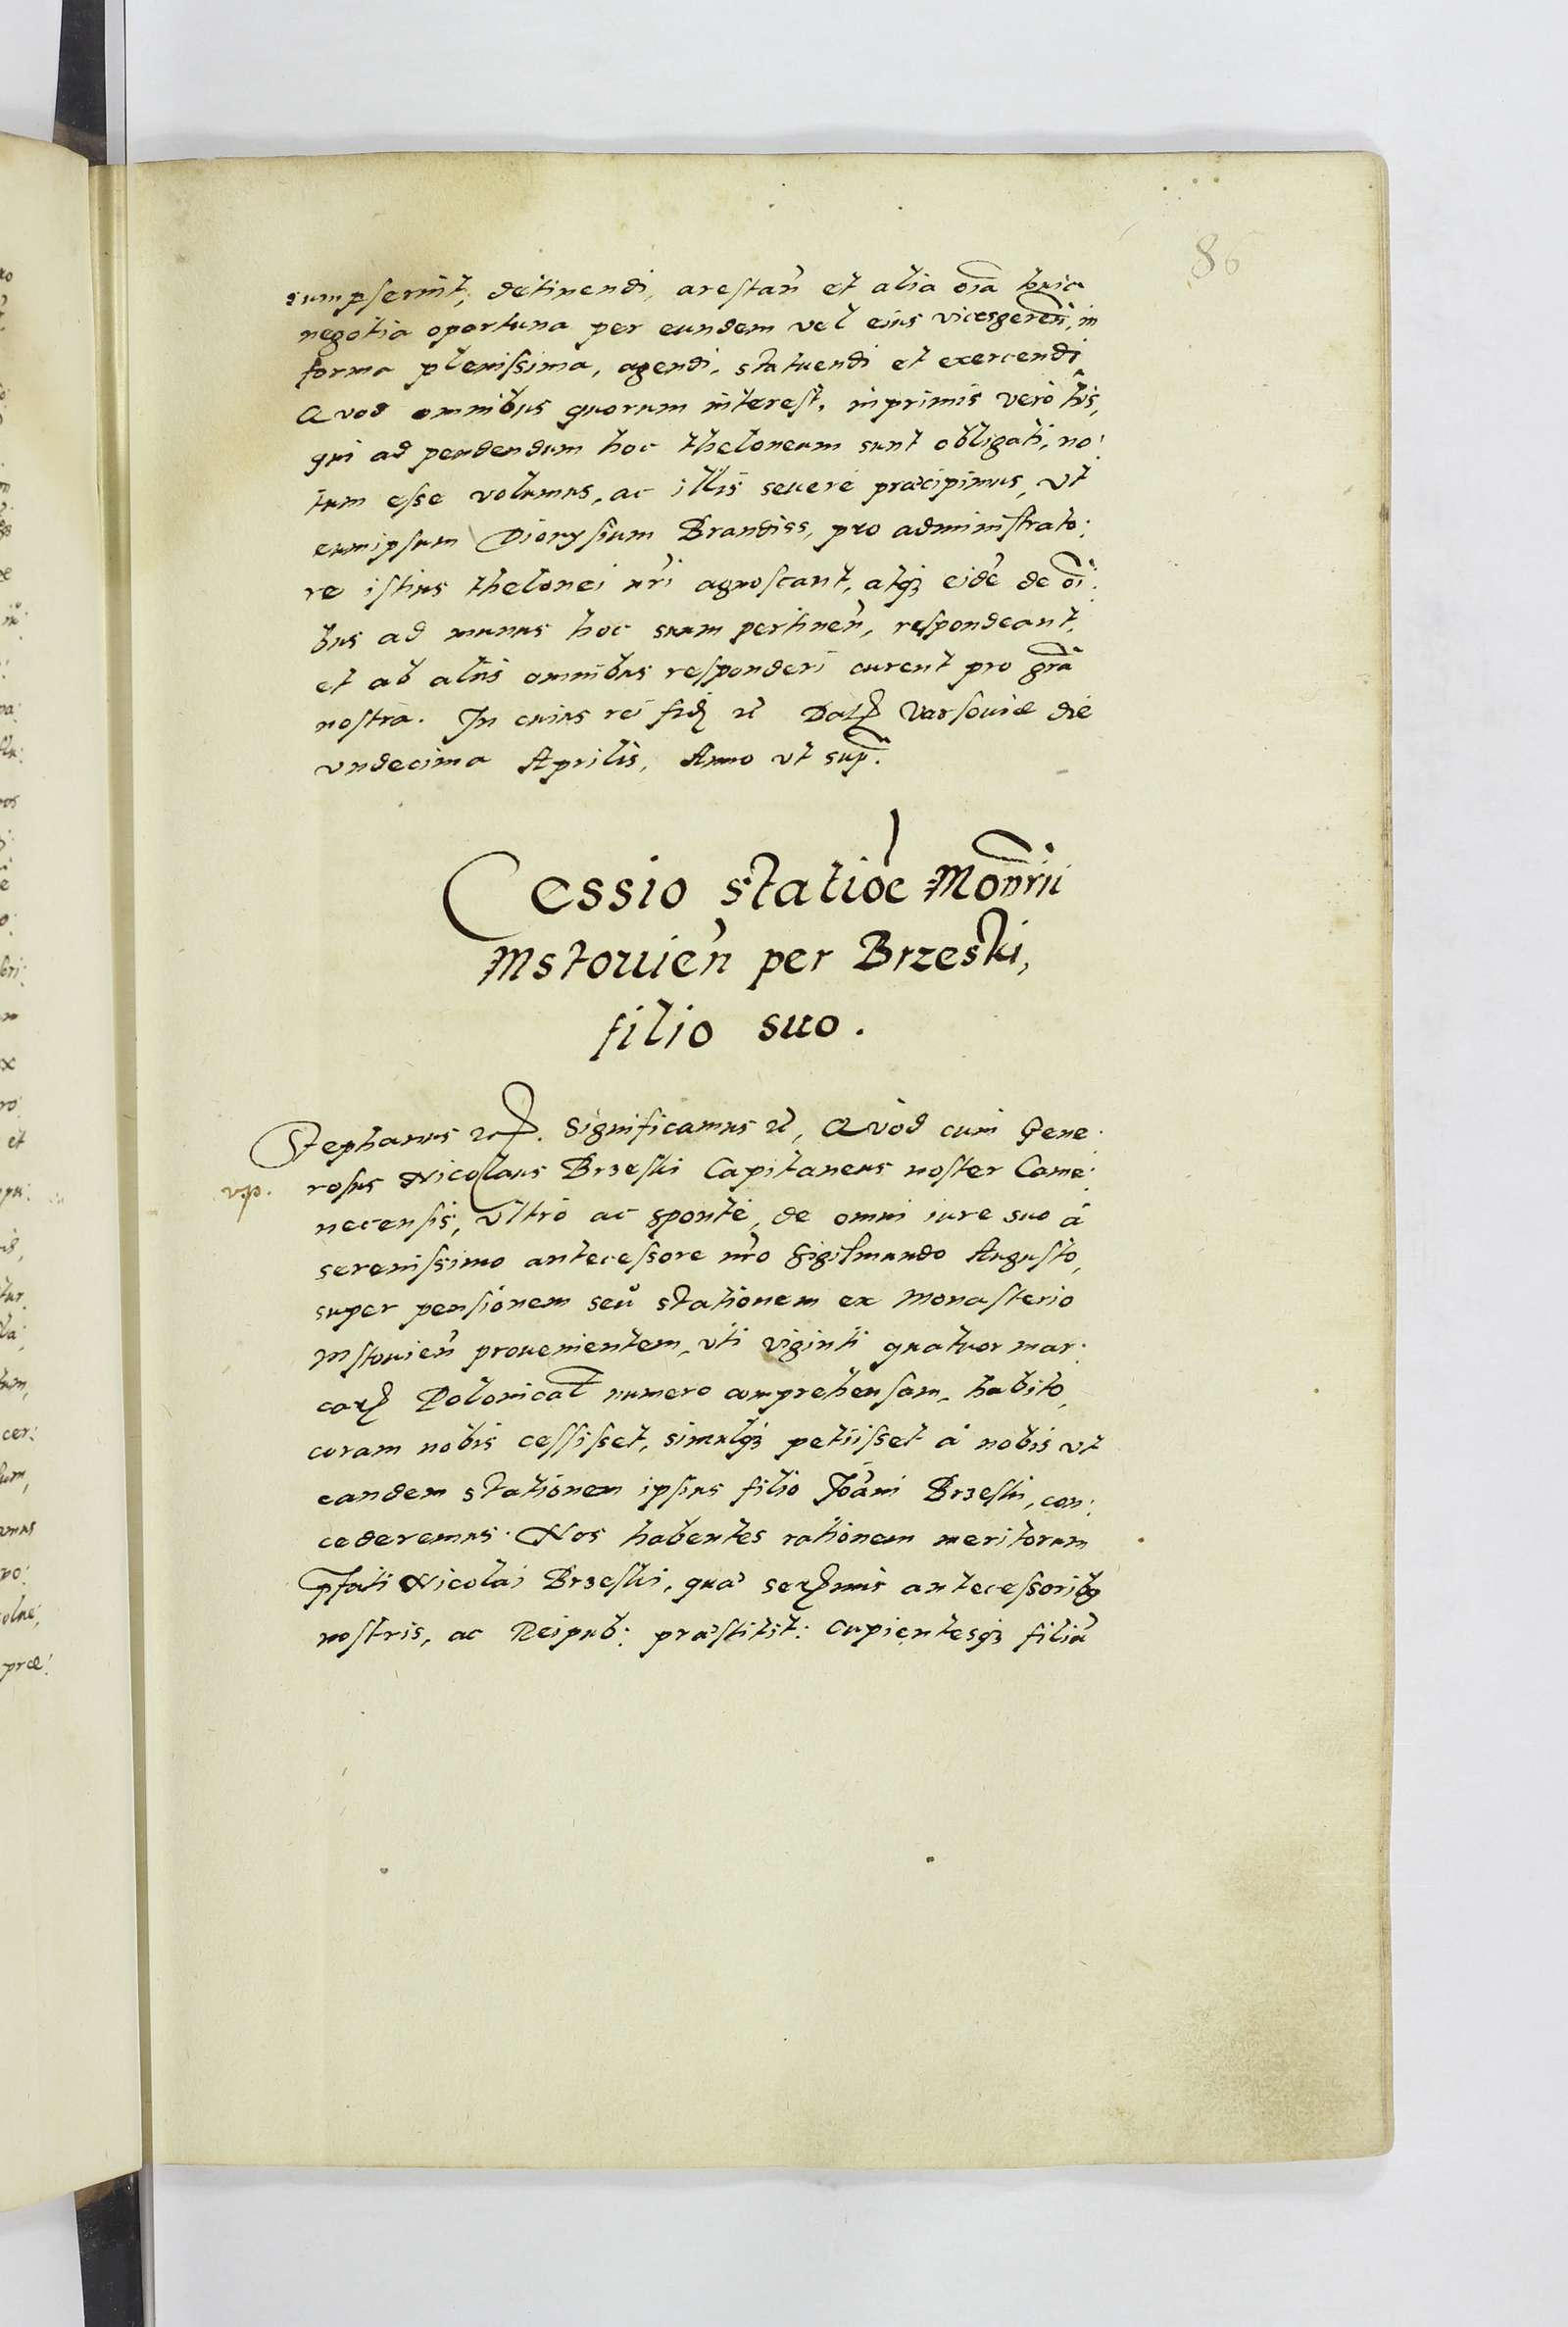 86
sumpserint, detinendi, arestań et alia oīa huic
negotia oportuna per eundem vel eius vicesgereń, in
forma plenissima, agendi, statuendi et exercendi
Quod omnibus quorum interest, inprimis vero his,
qui ad pendendum hoc theloneum sunt obligati, no:
tum esse volumus, ac illis seuere præcipimus, vt
eumipsum Dionysium Brandiss, pro administrato:
re istius thelonei nri agnoscant, atqꝫ eidē de oī:
bus ad munus hoc suum pertineń, respondeant,
et ab aliis omnibus responderi curent pro grā
nostra. In cuius rei fidꝫ etc Datꝫ Varsouiæ die
vndecima Aprilis, Anno vt sup̄.
Cessio statioē Mon̄rii
Mstouień per Brzeski,
filio suo.
Stephanus etc. Significamus etc, Quod cum Gene:
rosus Nicolaus Brzeski Capitaneus noster Came:
necensis, vltro ac sponte, de omni iure suo à
serenissimo antecessore nro Sigismundo Augusto,
super pensionem seu stationem ex Monasterio
Mstouień prouenientem, vti viginti quatuor mar:
carꝫ Polonical numero comprehensam, habito,
coram nobis cessisset, simulqꝫ petiisset à nobis vt
eandem stationem ipsius filio Joāni Brzeski, con:
cederemus. Nos habentes rationem meritorum
pfati Nicolai Brzeski, quæ serꝫmis antecessoribꝫ
nostris, ac Reipub: præstitit: Cupientesqꝫ filiū